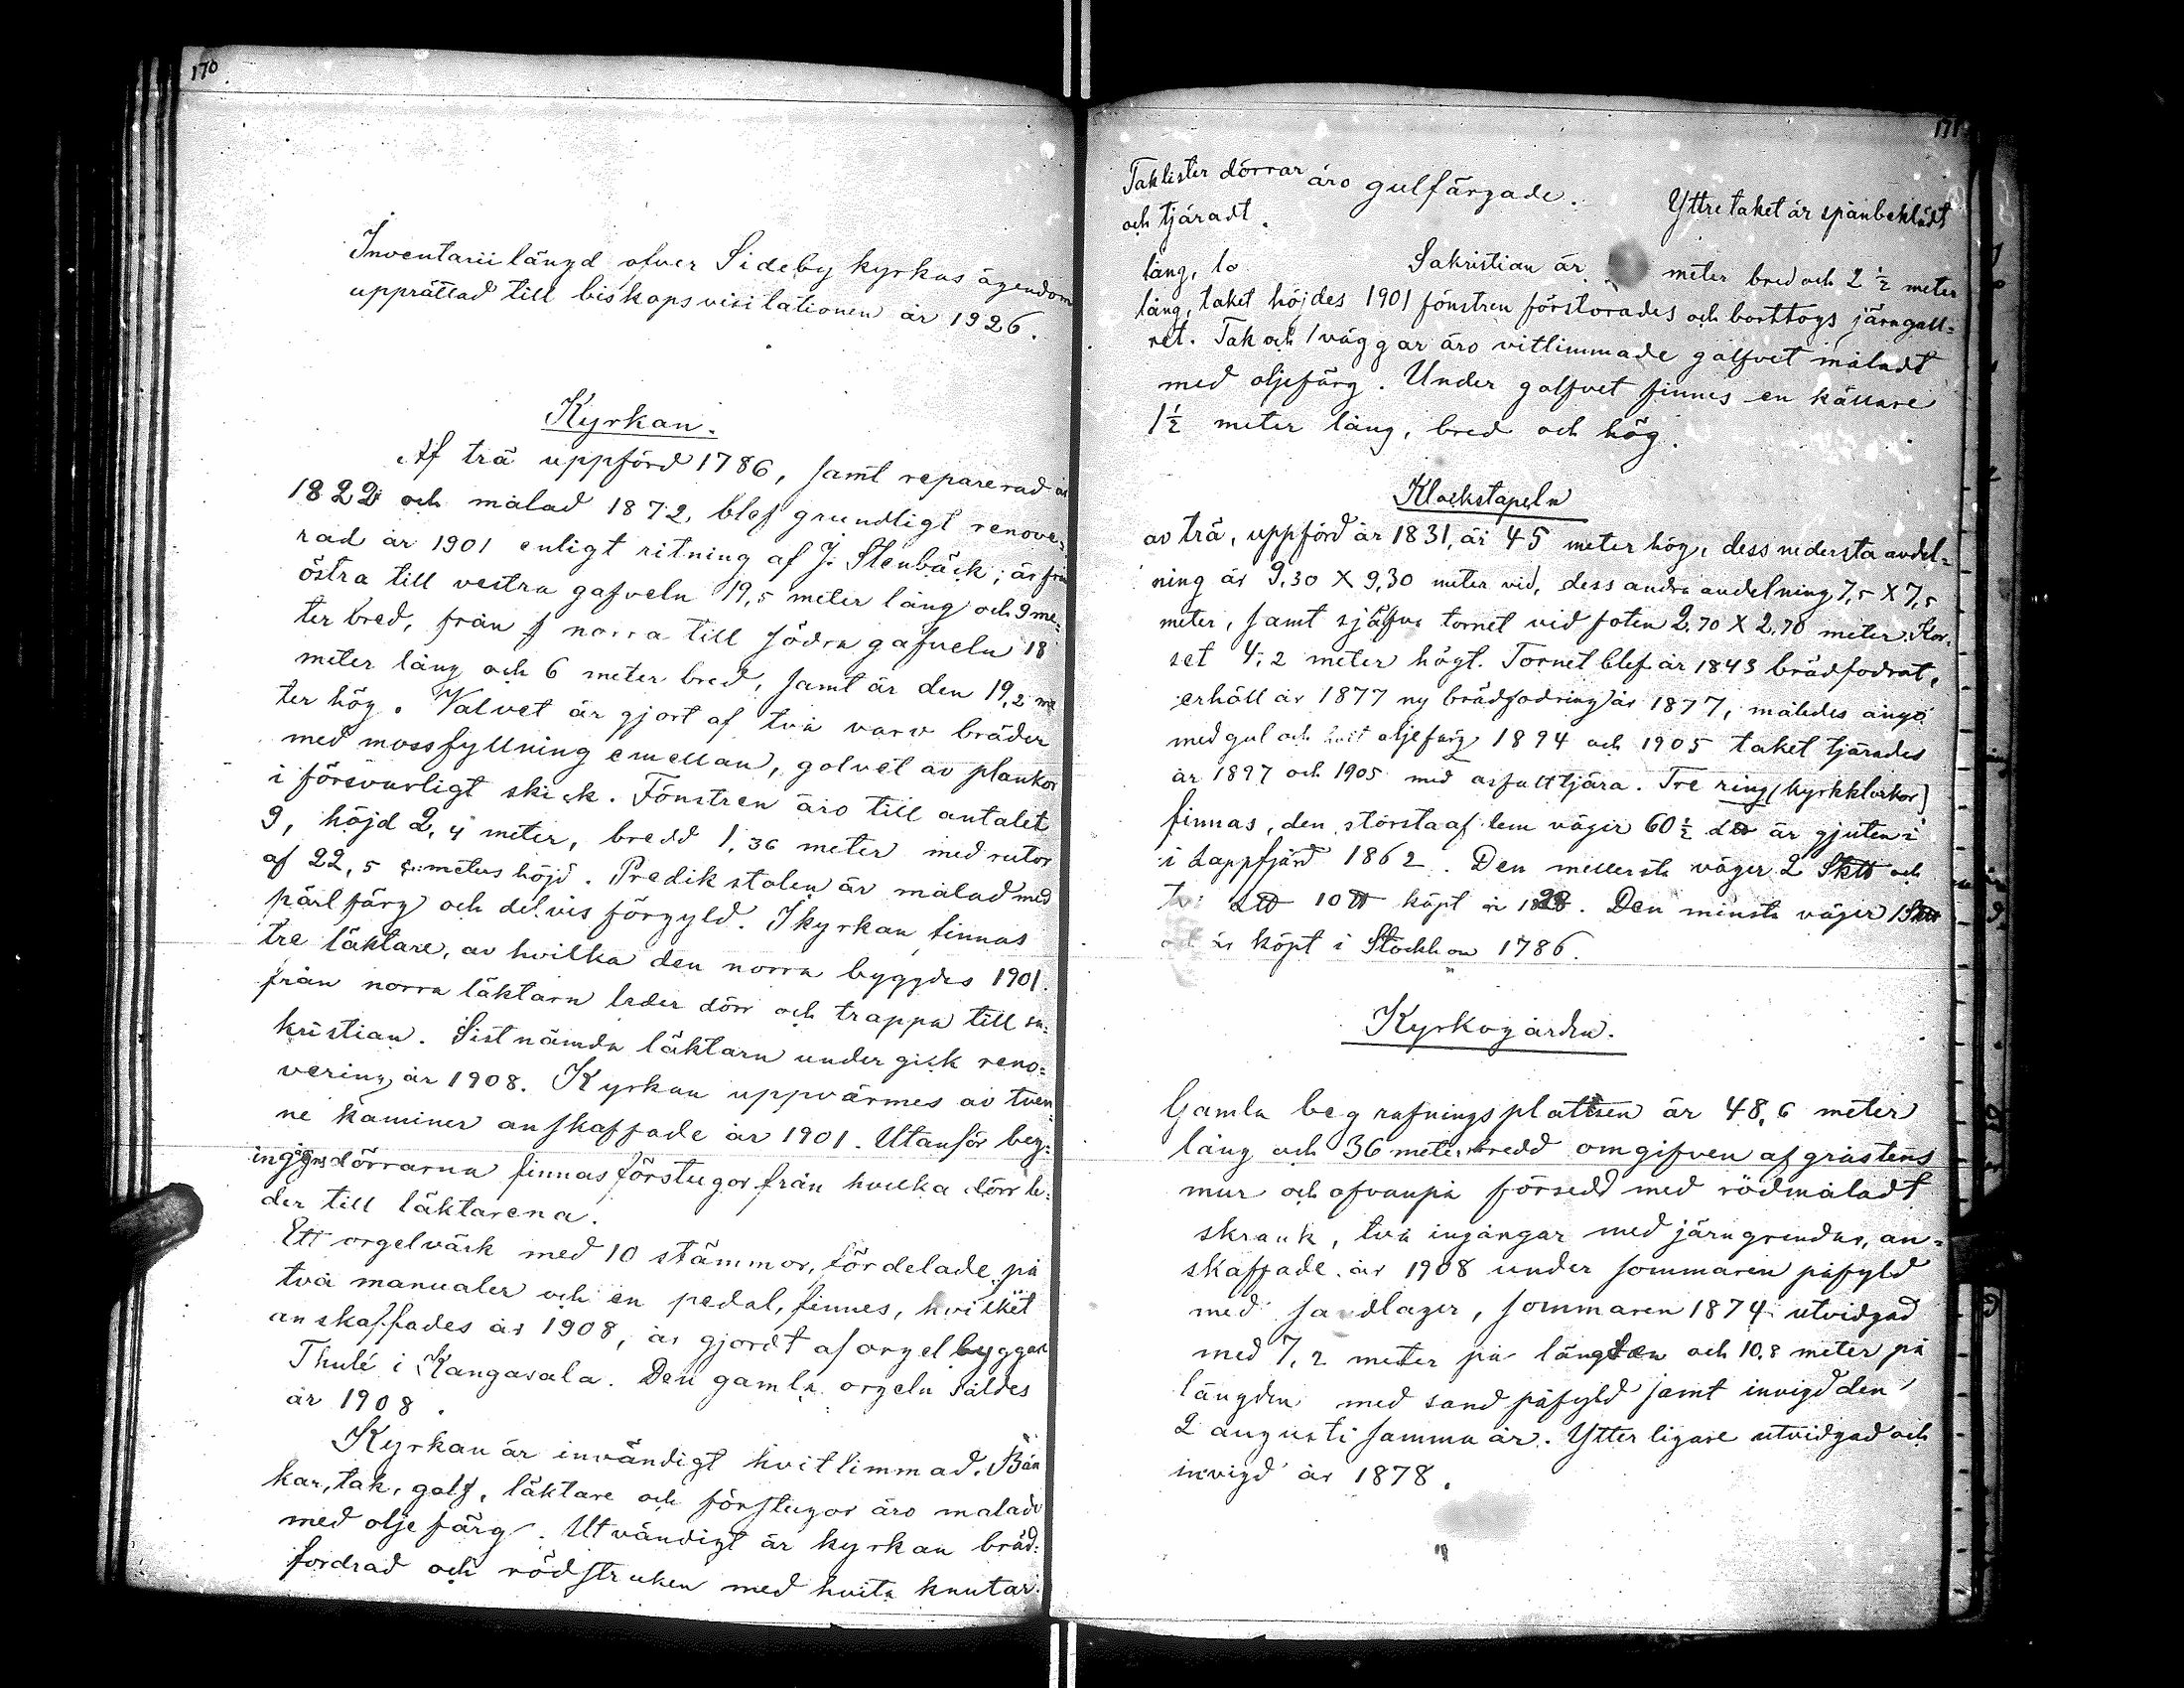 170
Inventarii längd öfver Sideby kyrkas ägendom
upprättad till biskopsvisitationen år 1926.
Kyrkan.
Af trä uppförd 1786, samt reparerad år
1822 och målad 1872, blef grundligt renove=
rad år 1901 enligt ritning af J. Stenbäck; är från
östra till vestra gafveln 19,5 meter lång och 9 me=
ter bred, från norra till södra gafveln 18
meter lång och 6 meter bred, samt är den 19,2 me
ter hög. Valvet är gjort af två varv bräder
med mossfyllning emellan, golvet av plankor
i försvarligt skick. Fönstren äro till antalet
9, höjd 2,4 meter, bredd 1,36 meter med rutor
af 22,5 höjd. Predikstolen är målad med
pärlfärg och delvis förgyld. I kyrkan finnas
tre läktare, av hvilka den norra byggdes 1901.
från norra läktarn leder dörr och trappa till sa=
kristian. Sistnämda läktarn undergick reno=
vering år 1908. Kyrkan uppvärmes av tven
ne kaminer anskaffade år 1901. Utanför beg=
ingångsdörrarna finnas förstugor från hvilka dörr le=
der till läktarena.
Ett orgelvärk med 10 stämmor, fördelade på
två manualer och en pedal, finnes, hvilket
anskaffades år 1908, är gjordt af orgelbyggar
Thulé i Kangasala. Den gamla orgeln såldes
år 1908.
Kyrkan är invändigt hvitlimmad. Bän
kar, tak, golf, läktare och förstugor äro malade
med oljefärg. Utvändigt är kyrkan bräd=
fordrad och rödstruken med hvita knutar.
171
Taklister dörrar äro gulfärgade. Yttre taket är spånbeklädt
och tjäradt.
Sakristian är meter bred och 2 1/2 meter
lång,
lång, taket höjdes 1901 fönstren förstorades och borttogs järngall=
ret. Tak och väggar äro vitlimmade golfvet måladt
med oljefärg. Under golfvet finnes en källare
1 1/2 meter lång, bred och hög.
Klockstapeln
av trä, uppförd år 1831, är 45 meter hög, dess nedersta avdel=
ning är 9,30 X 9,30 meter vid, dess andra avdelning 7,5 X 7,5
meter, samt själfva tornet vid foten 2,70 X 2,70 meter. Kor=
set 4,2 meter högt. Tornet blef år 1843 brädfodrat,
erhåll år 1877 ny brädfodring år 1877, målades ånyo
med gul och hvit oljefärg 1894 och 1905 taket tjärades
år 1897 och 1905 med asfalttjära. Tre ring (kyrkklockor)
finnas, den största af dem väger 60 1/2 är gjuten i
i Lappfjärd 1862. Den mellersta väger 2 och
10 köpt år. Den minsta väger 1
är köpt i Stockhom 1786.
Kyrkogården.
Gamla begrafningsplattsen är 48,6 meter
lång och 36 meter bredd omgifven af gråstens
mur och ofvanpå försedd med rödmåladt
skrank, två ingångar med järngrindar, an=
skaffade år 1908 under sommaren påfyld
med sandlager, sommaren 1874 utvidgad
med 7,2 meter på längden och 10,8 meter på
längden med sand påfyld samt invigd den
2 augusti samma år. Ytterligare utvidgad och
invigd år 1878.